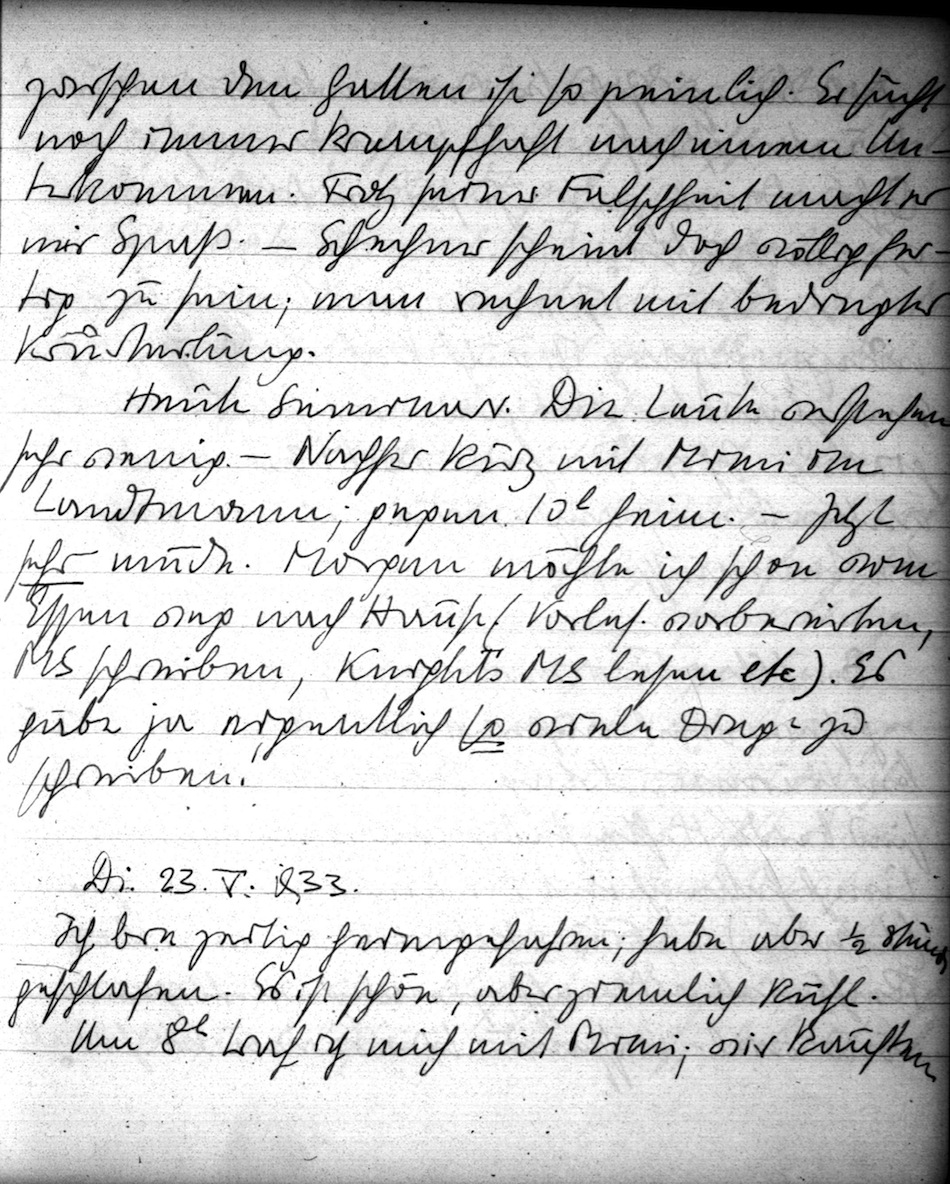 zwischen den Fällen ist so peinlich. Er sucht
noch immer krampfhaft nach einem Un-
terkommen. Trotz seiner Falschheit macht er
mir Spaß. – Schechner scheint doch völlig fer-
tig zu sein; man rechnet mit bedingter
Heute Seminar. Die Leute verstehen
sehr wenig. – Nachher kurz mit Mimi im
Landtmann; gegen 10h heim. – Jetzt
sehr müde. Morgen möchte ich schon vom
Essen weg nach Hause (Vorles. vorbereiten,
MS schreiben, Knights MS lesen etc). Es
gäbe ja eigentlich so viele Dinge zu
schreiben!
Di. 23. V. 1933.
Ich bin zeitig heimgefahren; habe aber ½ Stunde
geschlafen. Es ist schön, aber ziemlich kühl.
Um 8h traf ich mich mit Mimi; wir kauften